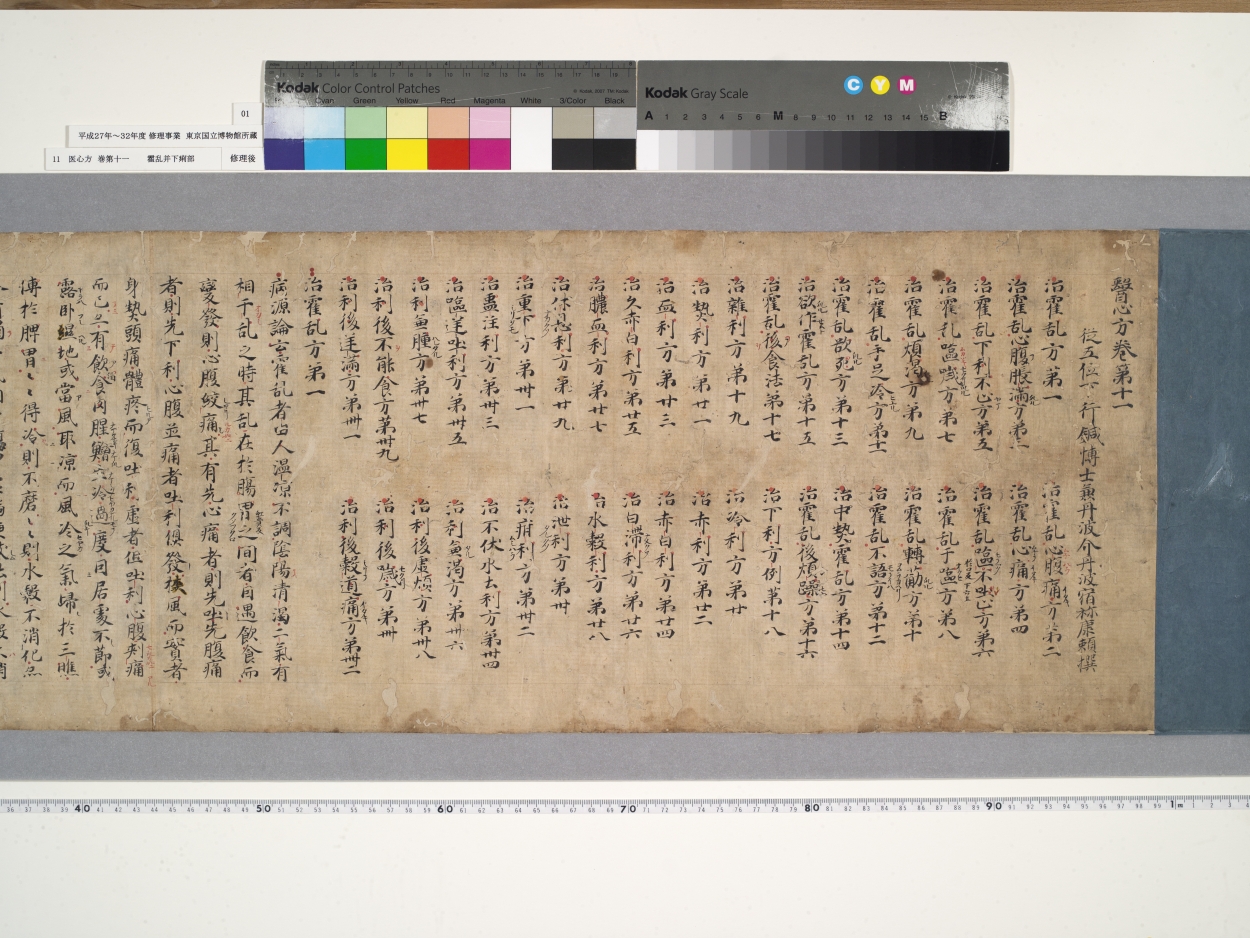 Kodak Color Control Patches
Cyan Green Yellow Red Magenta White 3/Color Black
Kodak Gray Scale
C Y M
A 1 2 3 4 5 6 M 8 9 10 11 12 13 14 15 B
01
平成27年～32年度 修理事業 東京国立博物館所蔵
11 医心方 巻第十一 霍乱并下痢部 修理後
醫心方巻第十一
従五位下行鍼博士兼丹波介丹波宿祢康頼撰
治霍乱方第一 治霍乱心腹痛方第二
治霍乱心腹脹満方第三 治霍乱心痛方第四
治霍乱下利不止方第五 治霍乱嘔不止方第六
治霍乱嘔噦方第七 治霍乱干嘔方第八
治霍乱煩渇方第九 治霍乱轉筋方第十
治霍乱手足冷方第十一 治霍乱不語方第十二
治霍乱欲死方第十三 治中熱霍乱方第十四
欲作霍乱方第十五 治霍乱後煩躁方第十六
霍乱後食法第十七 治下利方例第十八
治雜利方第十九 治冷利方第廿
治熱利方第廿一 治赤利方第廿二
治血利方第廿三 治赤白利方第廿四
治久赤白利方第廿五 治白滞利方第廿六
治膿血利方第廿七 治水穀利方第廿八
治休息利方第廿九 治泄利方第卅
治重下方第卅一 治疳利方第卅二
治蠱注利方第卅三 治不伏水土利方第卅四
治嘔逆吐利方第卅五 治利兼渇方第卅六
治利兼腫方第卅七 治利後虚煩方第卅八
治利後不能食方第卅九 治利後噦方第卌
治利後逆満方第卌一 治利後穀道痛方第卌二
治霍乱方第一
病源論云霍乱者由人温凉不調陰陽清濁二氣有
相干乱之時其乱在於腸胃之間者因遇飲食而
變發則心腹絞痛其有先心痛者則先吐先腹痛
者則先下利心腹並痛者吐利俱發挟風而實者
身熱頭痛體疼而復吐利虚者但吐利心腹刺痛
而已亦有飲食肉腥鱠冷過度因居處不節或
露臥濕地或當風取凉而風冷之氣歸於三膲
傳於脾胃〻得冷則不磨〻則水穀不消化
40 50 60 70 80 90 1m